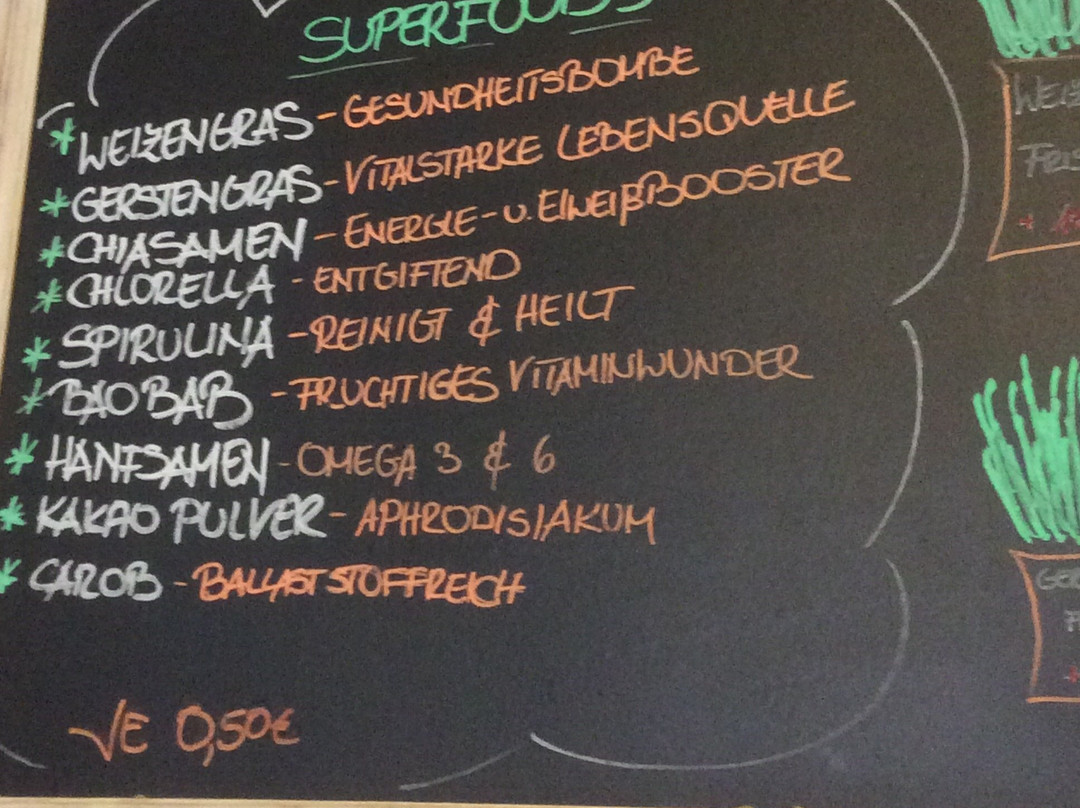 SUPERFOODS
* WEIZENGRAS - GESUNDHEITSBOMBE
* GERSTENGRAS - VITALSTARKE LEBENSQUELLE
* CHIASAMEN - ENERGIE- U. EIWEIßBOOSTER
* CHLORELLA - ENTGIFTEND
* SPIRULINA - REINIGT & HEILT
* BAOBAB - FRUCHTIGES VITAMINWUNDER
* HANFSAMEN - OMEGA 3 & 6
* KAKAO PULVER - APHRODISIAKUM
* CAROB - BALLASTSTOFFREICH
JE 0,50€